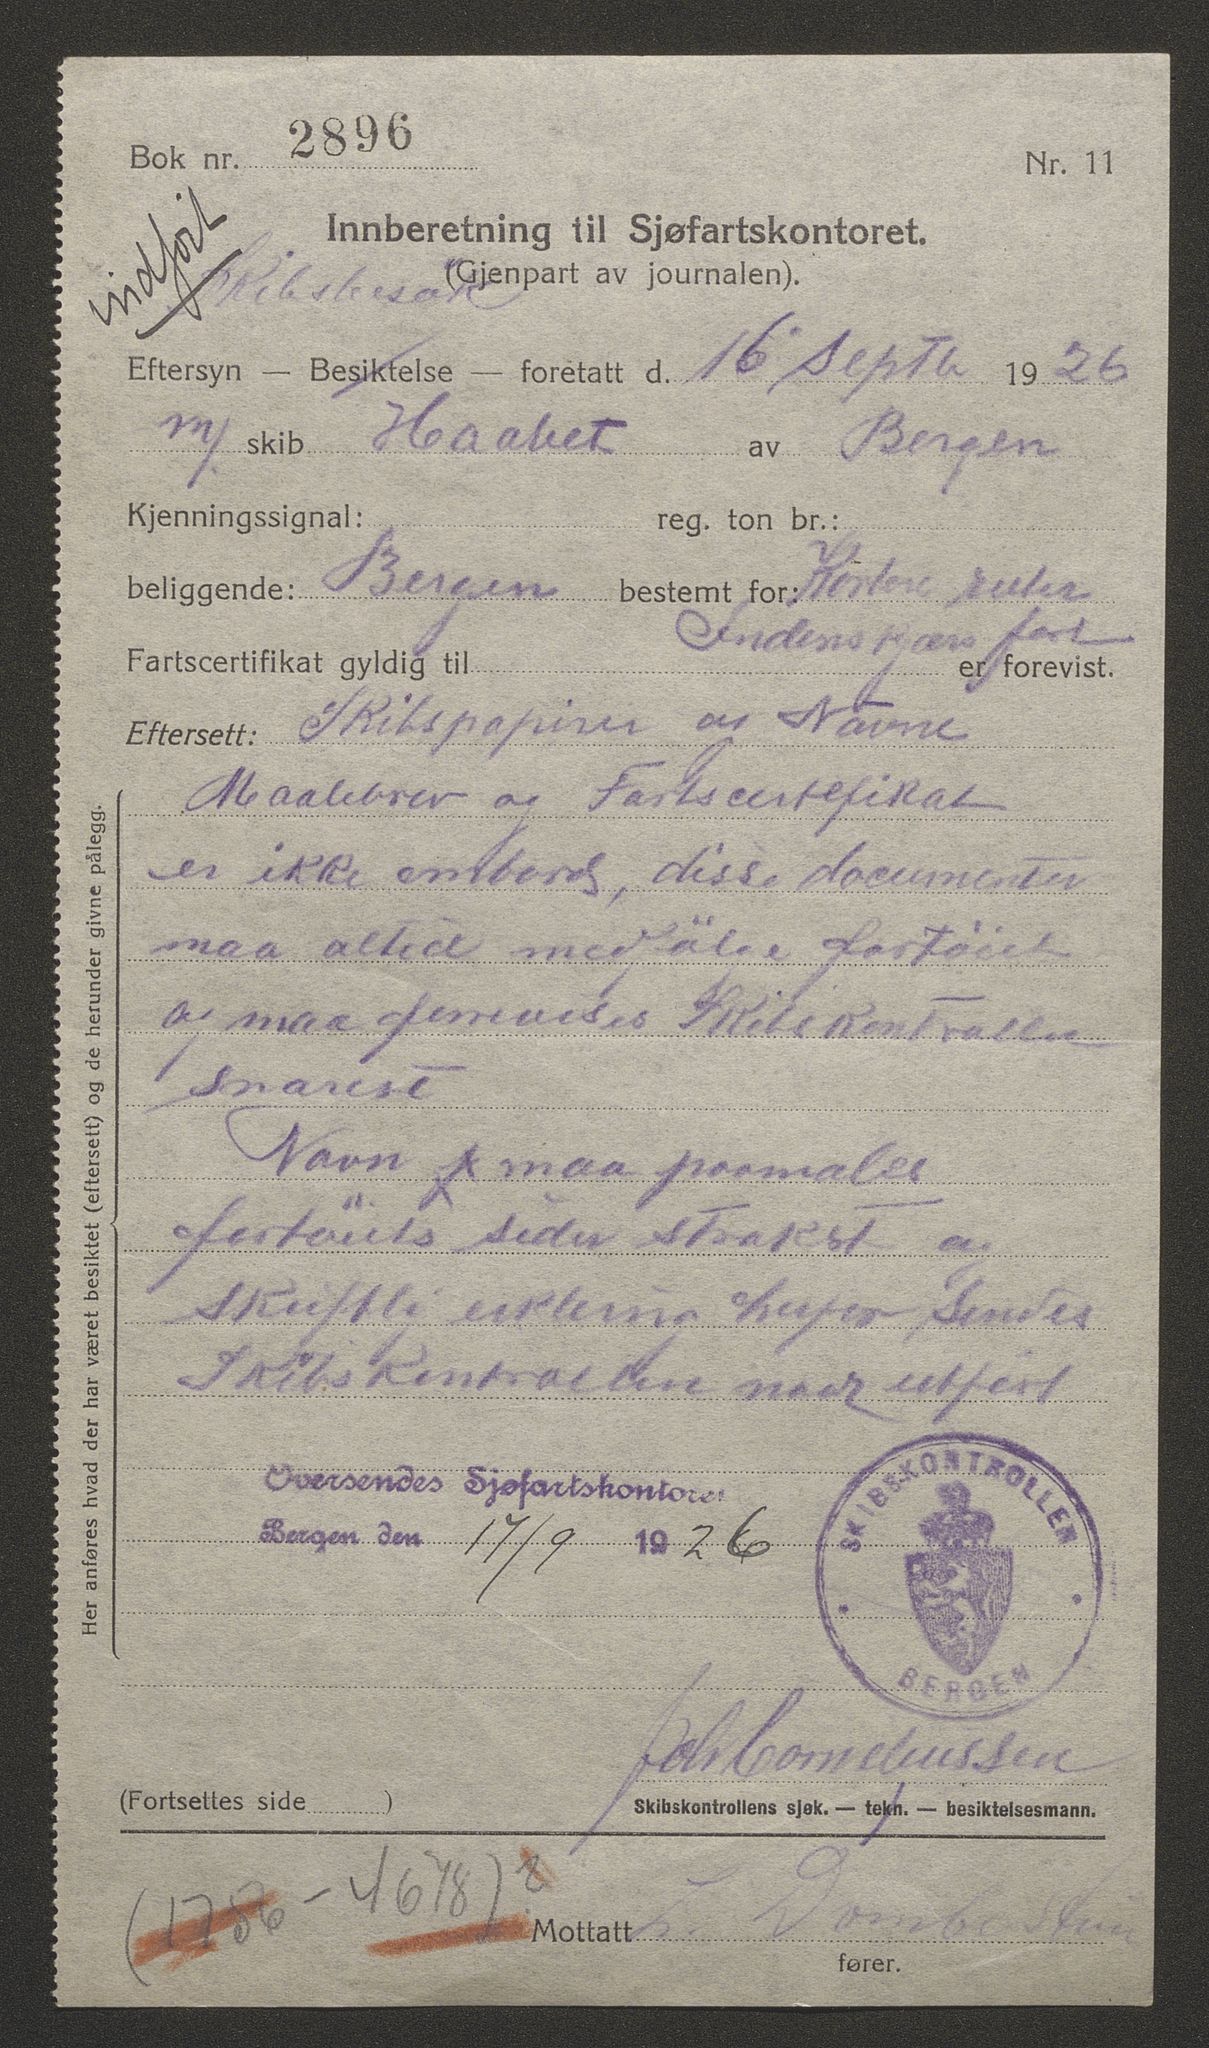 Bok nr. 2896
Nr. 11
indført
Innberetning til Sjøfartskontoret.
(Gjenpart av journalen).
Skibsbesøk
Eftersyn — Besiktelse — foretatt d. 16 Septb 1926
m/ skib Haabet av Bergen
Kjenningssignal: reg. ton br.:
beliggende: Bergen bestemt for: Kortere ruter
Indenskjærs fart
Fartscertifikat gyldig til er forevist.
Eftersett: Skibspapirer og Navne
Maalebrev og Fartscertefikat
er ikke ombord, disse documenter
maa altid medfölge fartöiet
og maa fremvises Skibskontrollen
snarest
Navn maa paamales
fartöiets sider strakst og
skriftli erklering herfor sendes
Skibskontrollen naar utfört
Her anføres hvad der har været besiktet (eftersett) og de herunder givne pålegg.
Oversendes Sjøfartskontoret
Bergen den 17/9 1926
SKIBSKONTROLLEN
BERGEN
Joh Corneliussen
(Fortsettes side )
Skibskontrollens sjøk. — tekn. — besiktelsesmann.
(1786 - 4678)?
Mottatt
fører.